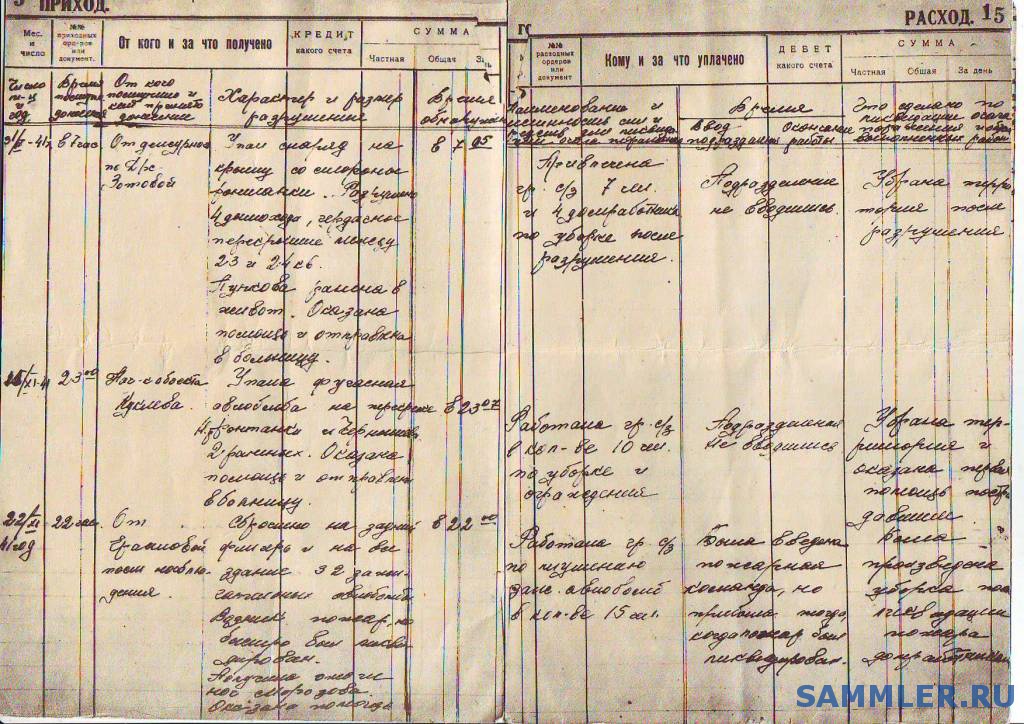 ПРИХОД.
Мес. и число
№№ приходных ордеров или документ.
От кого и за что получено
КРЕДИТ какого счета
СУММА
Частная
Общая
За
Число м-ц и год
Время поступ. донесения
От кого поступило и как принято донесение
Характер и размер разрушения
Время обнаружен
41г. в 7 час.
От дежурного
по д/х
Зотовой
Упал снаряд на
крышу со стороны
фонтанки. Разрушено
4 дымохода, чердачное
перекрытие между
23 и 24 кб.
Пункова ранена в
живот. Оказана
помощь и отправлена
в больницу.
в 7 05
XI-41
23 00
Нач-к объекта
Упала фугасная
авиабомба на перекрестке
Н. фонтанки и Чернышева
2 раненых. Оказана
помощь и отправлен
в больницу.
в 23 07
22/XI
41 год
22 час.
От
Ермиловой
после наблю-
дения.
Сброшено на задний
флигель и на все
здание 32 зажи-
гательных авиабомбы
Возник пожар, но
быстро был ликви-
дирован.
Получила ожоги
Морозова.
Оказана помощь
в 22 00
РАСХОД. 15
№№ расходных ордеров или документ
Кому и за что уплачено
ДЕБЕТ какого счета
СУММА
Частная
Общая
За день
Наименование и
численность сил и
средств для ликвида
ции очага поражения
Время
Ввод подразделения
Окончание работы
Что сделано по
ликвидации очага
поражения
Привлечена
гр. сз 7 чел.
и 4 домработниц
по уборке после
разрушения.
Подразделение
не вводились.
Убрана терри-
тория после
разрушения
Работала гр. сз
в кол-ве 10 чел.
по уборке и
ограждения
Подразделения
не вводились
Убрана тер-
ритория и
оказана первая
помощь постра
давшим
Работала гр. сз
по тушению
заж. авиабомб
в кол-ве 15 чел.
Была введена
пожарная
команда, но
прибыла тогда,
когда пожар был
ликвидирован.
Была
произведена
уборка пос
ликвидации
пожара
домработниками
SAMMLER.RU